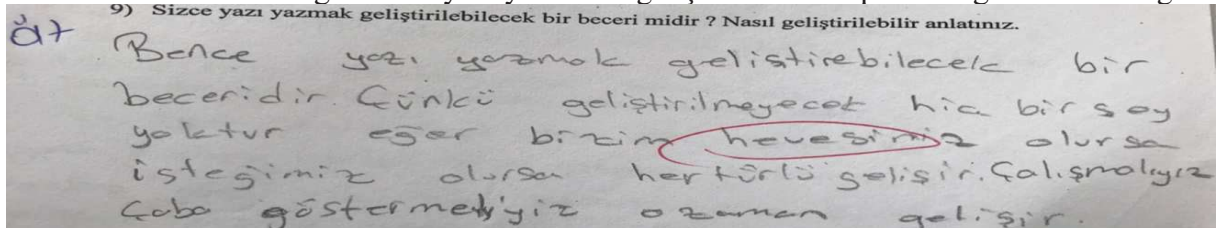 9) Sizce yazı yazmak geliştirilebilecek bir beceri midir ? Nasıl geliştirilebilir anlatınız.
Bence yazı yazmak geliştirebilecek bir
beceridir. Çünkü geliştirilmeyecek hiç bir şey
yoktur eğer bizim hevesimiz olursa
isteğimiz olursa her türlü gelişir. Çalışmalıyız
Çaba göstermeliyiz o zaman gelişir.